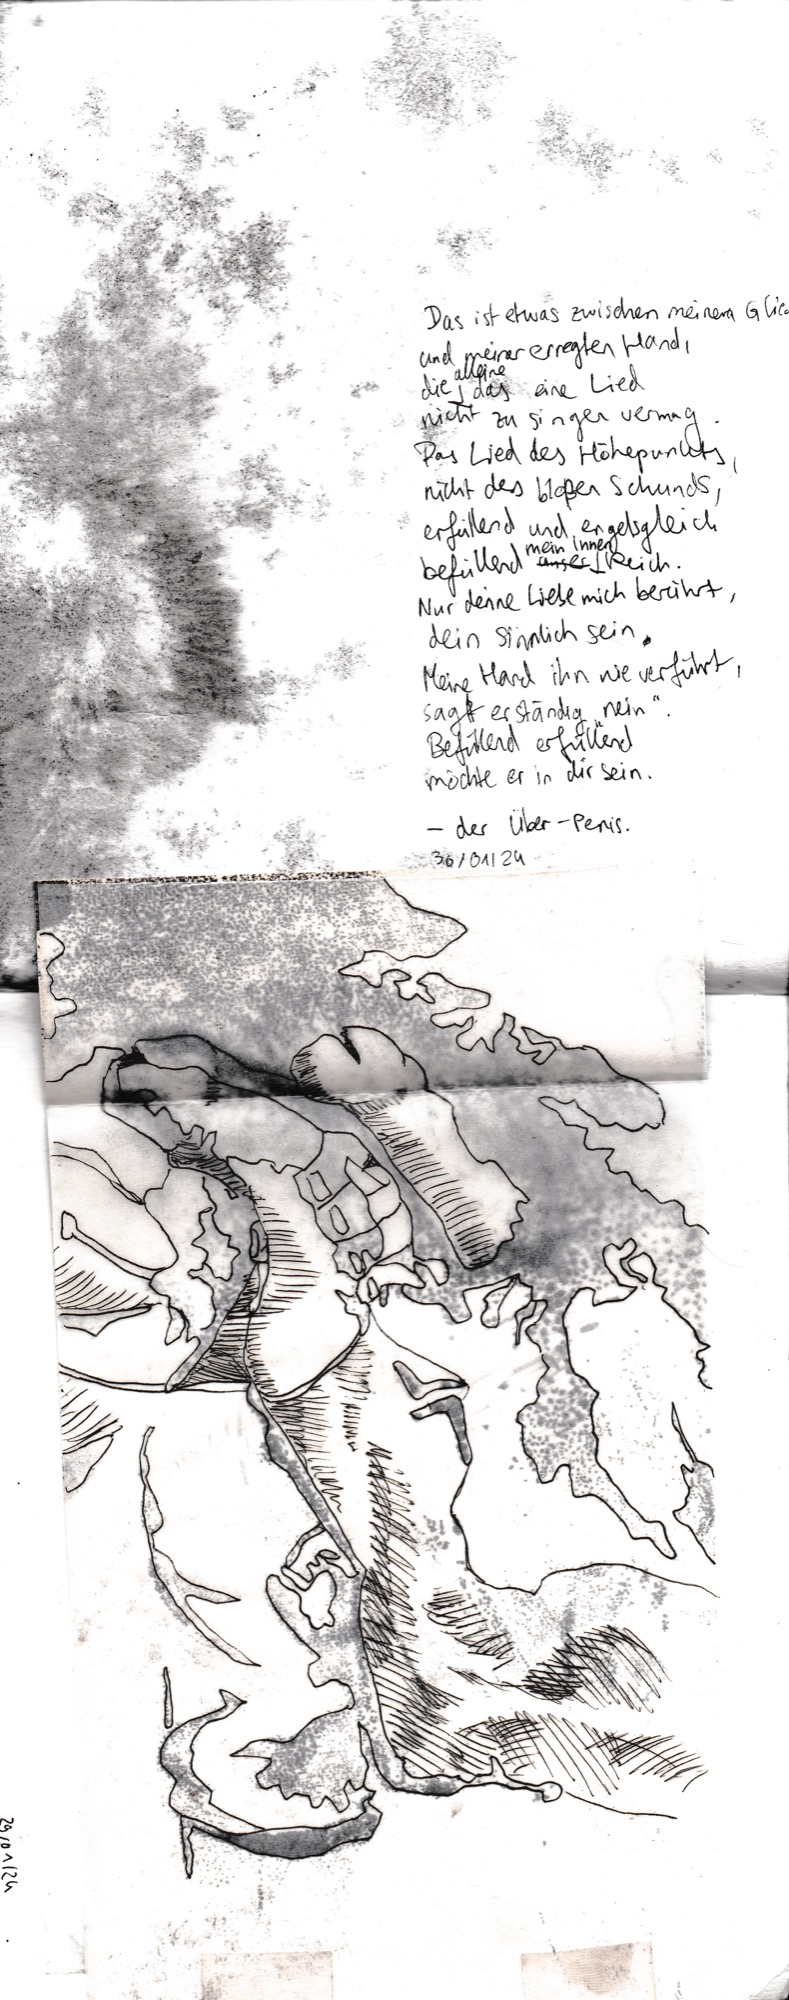 Das ist etwas zwischen meinem Glied
und meiner erregten Hand,
die alleine das eine Lied
nicht zu singen vermag.
Das Lied des Höhepunkts,
nicht des bloßen Schunds,
erfüllend und engelsgleich
befüllend unser mein innen Reich.
Nur deine Liebe mich berührt,
dein Sinnlich sein.
Meine Hand ihn nie verführt,
sagt er ständig "nein".
Befüllend erfüllend
möchte er in dir sein.
- der Über-Penis.
30/01/24
29/01/24